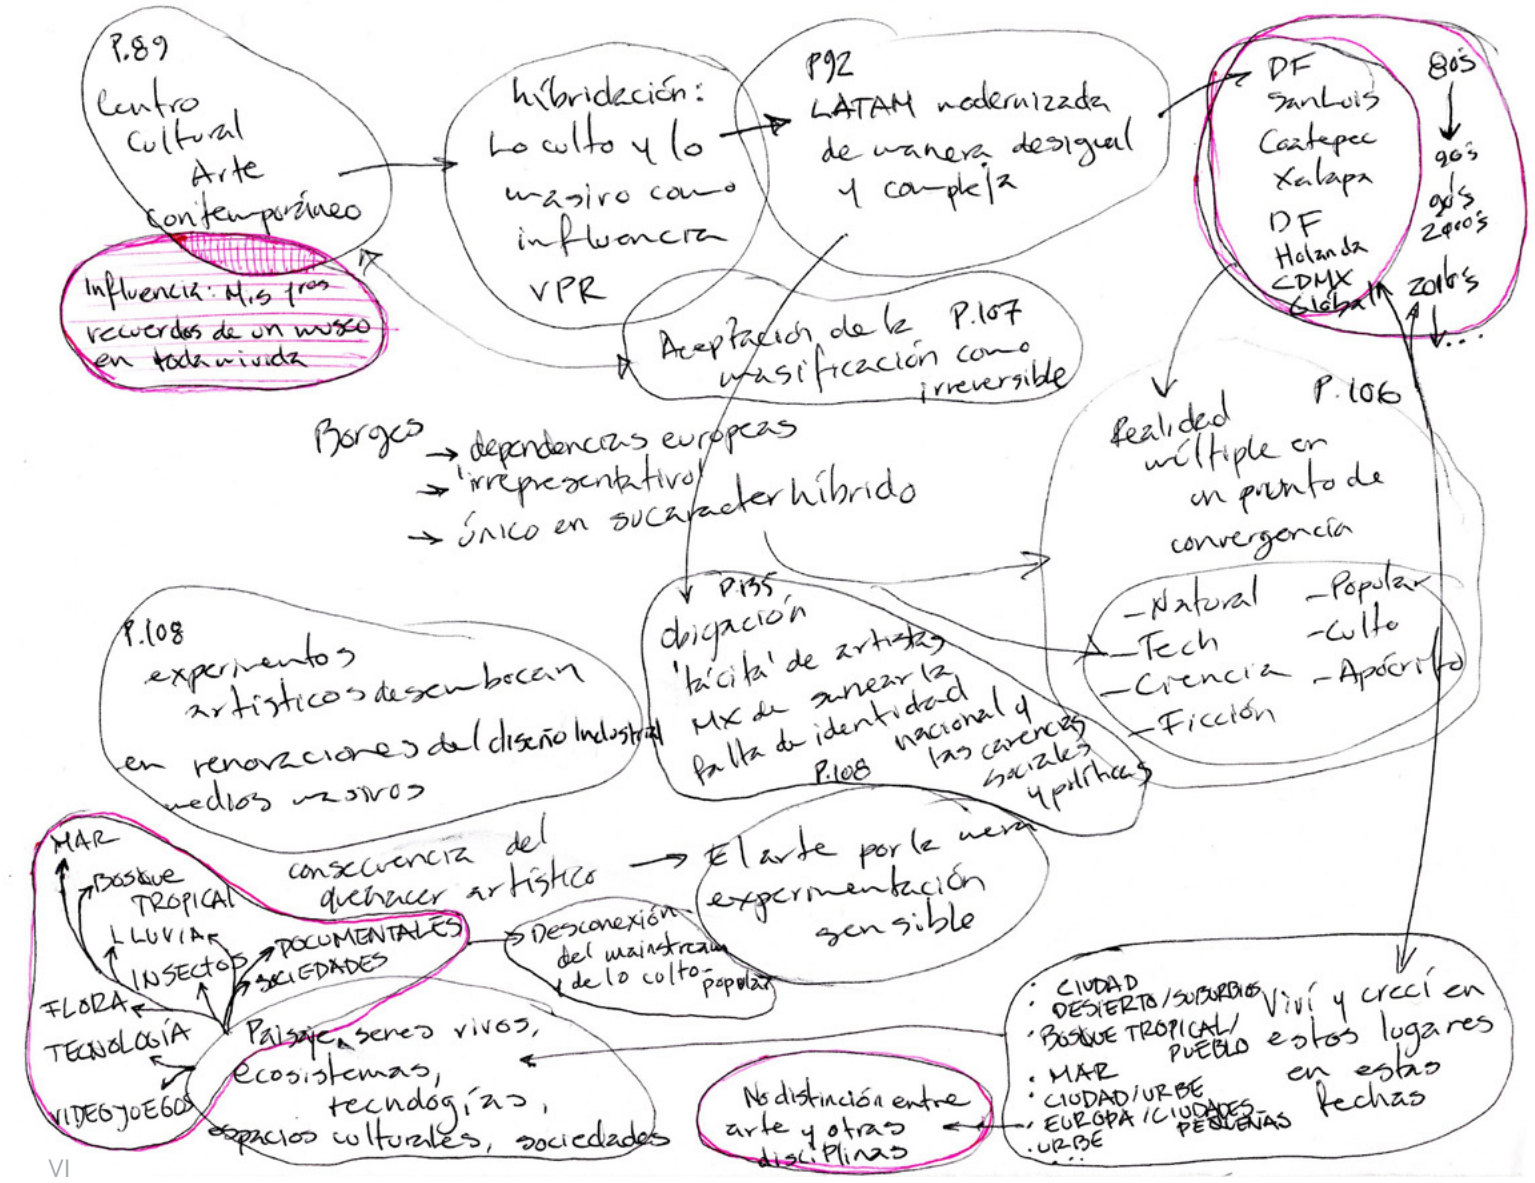 P.89
Centro
Cultural
Arte
Contemporáneo
Influencia: Mis 1ros
recuerdos de un museo
en toda mi vida
híbridación:
Lo culto y lo
masivo como
influencia
VPR
P92
LATAM modernizada
de manera desigual
y compleja
DF
San Luis
Coatepec
Xalapa
DF
Holanda
CDMX
Global
80's
90's
90's
2000's
2010's
...
Aceptación de la P.107
masificación como
irreversible
Borges
→ dependencias europeas
→ 'irrepresentativo'
→ único en su caracter híbrido
P.106
Realidad
múltiple en
un punto de
convergencia
- Natural
- Tech
- Ciencia
- Ficción
- Popular
- Culto
- Apócrifo
P.108
experimentos
artísticos desembocan
en renovaciones del diseño Industrial
medios masivos
P.135
obigación
'tácita' de artistas
MX de sanear la
falta de identidad
nacional y
las carencias
sociales
y políticas
P.108
El arte por la mera
experimentación
sensible
consecuencia del
quehacer artístico →
Desconexión
del mainstream
y de lo culto-
popular
MAR
BOSQUE
TROPICAL
LLUVIA
INSECTOS
DOCUMENTALES
SOCIEDADES
FLORA
TECNOLOGÍA
VIDEOJUEGOS
Paisaje, seres vivos,
ecosistemas,
tecnologías,
espacios culturales, sociedades
No distinción entre
arte y otras
disciplinas
· CIUDAD
· DESIERTO/SUBURBIOS
· BOSQUE TROPICAL/
PUEBLO
· MAR
· CIUDAD/URBE
· EUROPA/CIUDADES
PEQUEÑAS
· URBE
...
Viví y crecí en
estos lugares
en estas
fechas
VI